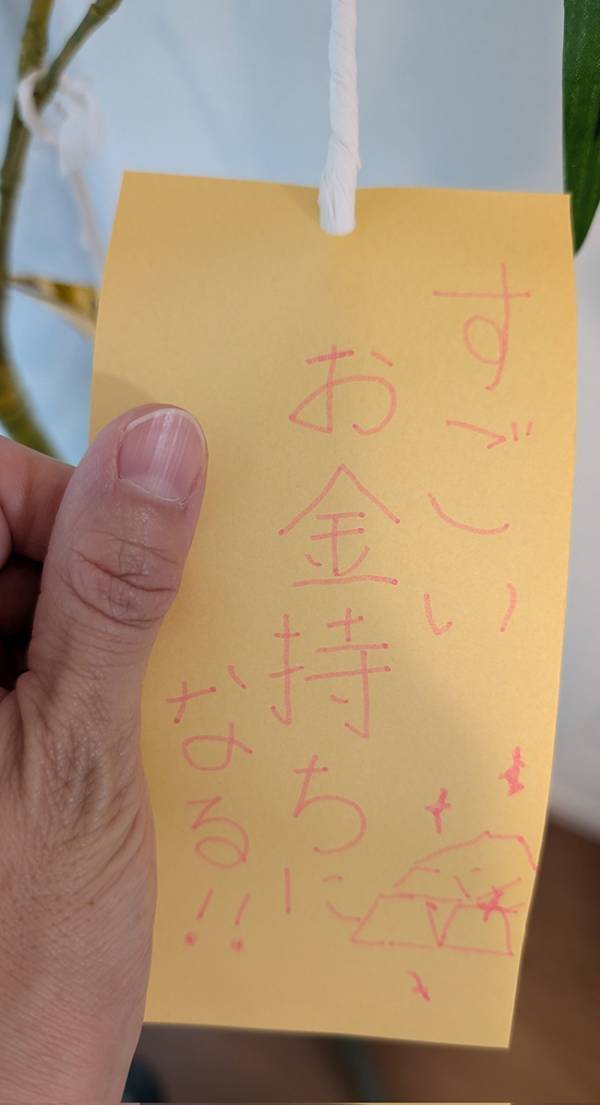 すごい
お金持ちに
なる!!